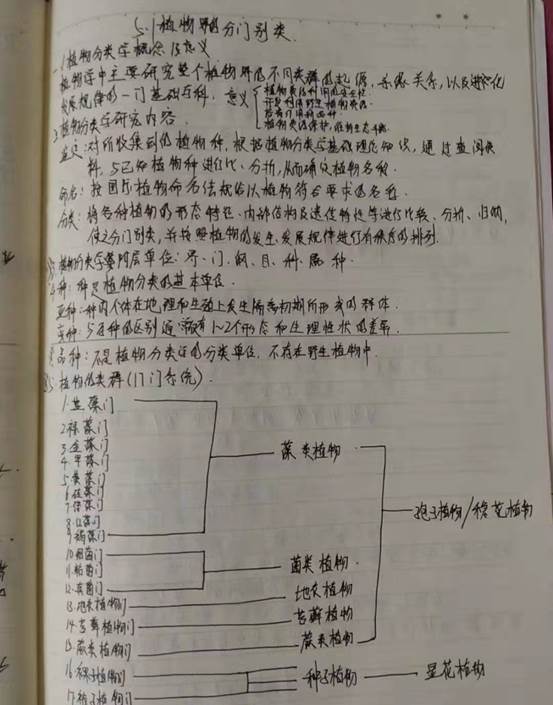 5.1植物界的分门别类
一.植物分类学概念及意义
植物学中主要研究整个植物界的不同类群的起源,亲缘关系,以及进化
发展规律的一门基础学科.意义
植物分类学研究内容.
鉴定:对所收集到的植物种,根据植物分类学基础理论知识,通过查阅资
料,与已知植物种进行比、分析,从而确定植物名称.
命名:按国际植物命名法规给以植物符合要求的名称.
分类:将各种植物的形态特征、内部结构及遗传特性等进行比较、分析、归纳,
使之分门别类,并按照植物的发生、发展规律进行有秩序的排列.
植物分类学等阶层单位:界、门、纲、目、科、属、种.
种:种是植物分类的基本单位.
亚种:一种内个体在地理和生殖上发生隔离初期所形成的群体.
变种:与原种的区别通常有1~2个形态和生理性状的差异.
品种:不是植物分类学的分类单位,不存在野生植物中.
植物的类群(17门系统).
1.蓝藻门
2.裸藻门
3.金藻门
4.甲藻门
5.黄藻门
6.硅藻门
7.绿藻门
8.红藻门
9.褐藻门
藻类植物
孢子植物/隐花植物
10.细菌门
11.黏菌门
12.真菌门
菌类植物
13.地衣植物门
地衣植物
14.苔藓植物门
苔藓植物
15.蕨类植物门
蕨类植物
16.裸子植物门
17.被子植物门
种子植物
显花植物